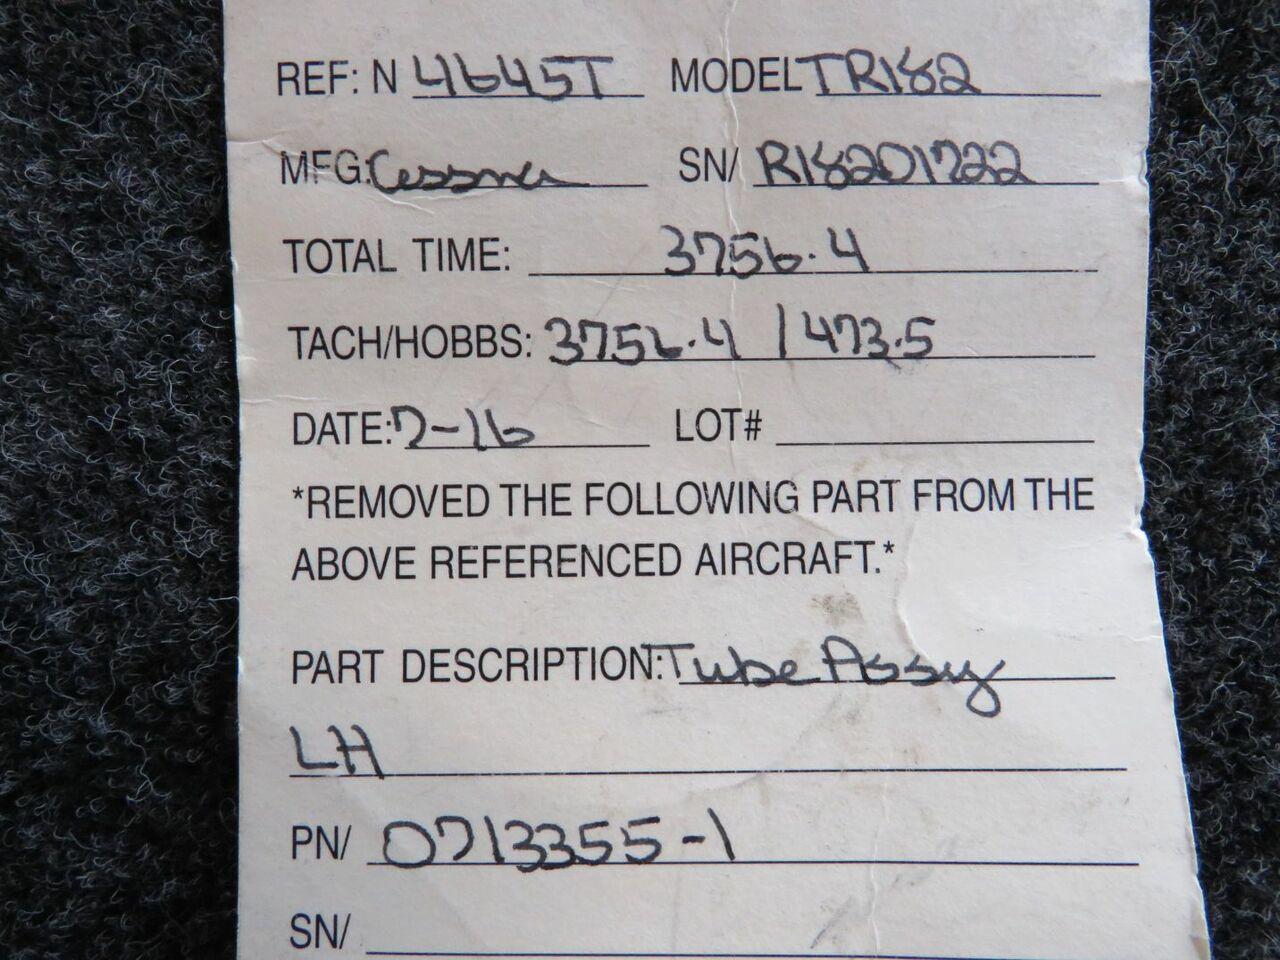 REF: N 4645T MODEL TR182
MFG: Cessna SN/ R18201722
TOTAL TIME: 3756.4
TACH/HOBBS: 3756.4 / 473.5
DATE: 7-16 LOT#
*REMOVED THE FOLLOWING PART FROM THE
ABOVE REFERENCED AIRCRAFT.*
PART DESCRIPTION: Tube Assy
LH
PN/ 0713355-1
SN/